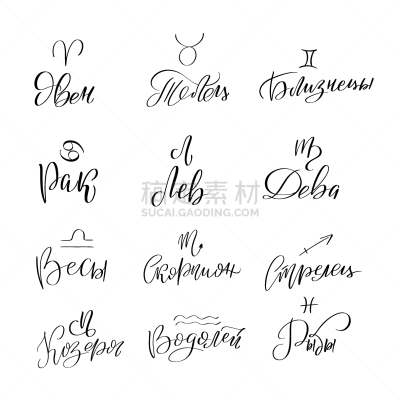 Овен Телец Близнецы
Рак Лев Дева
稿定素材
SUCAI.GAODING.COM
Весы Скорпион Стрелец
Козерог Водолей Рыбы